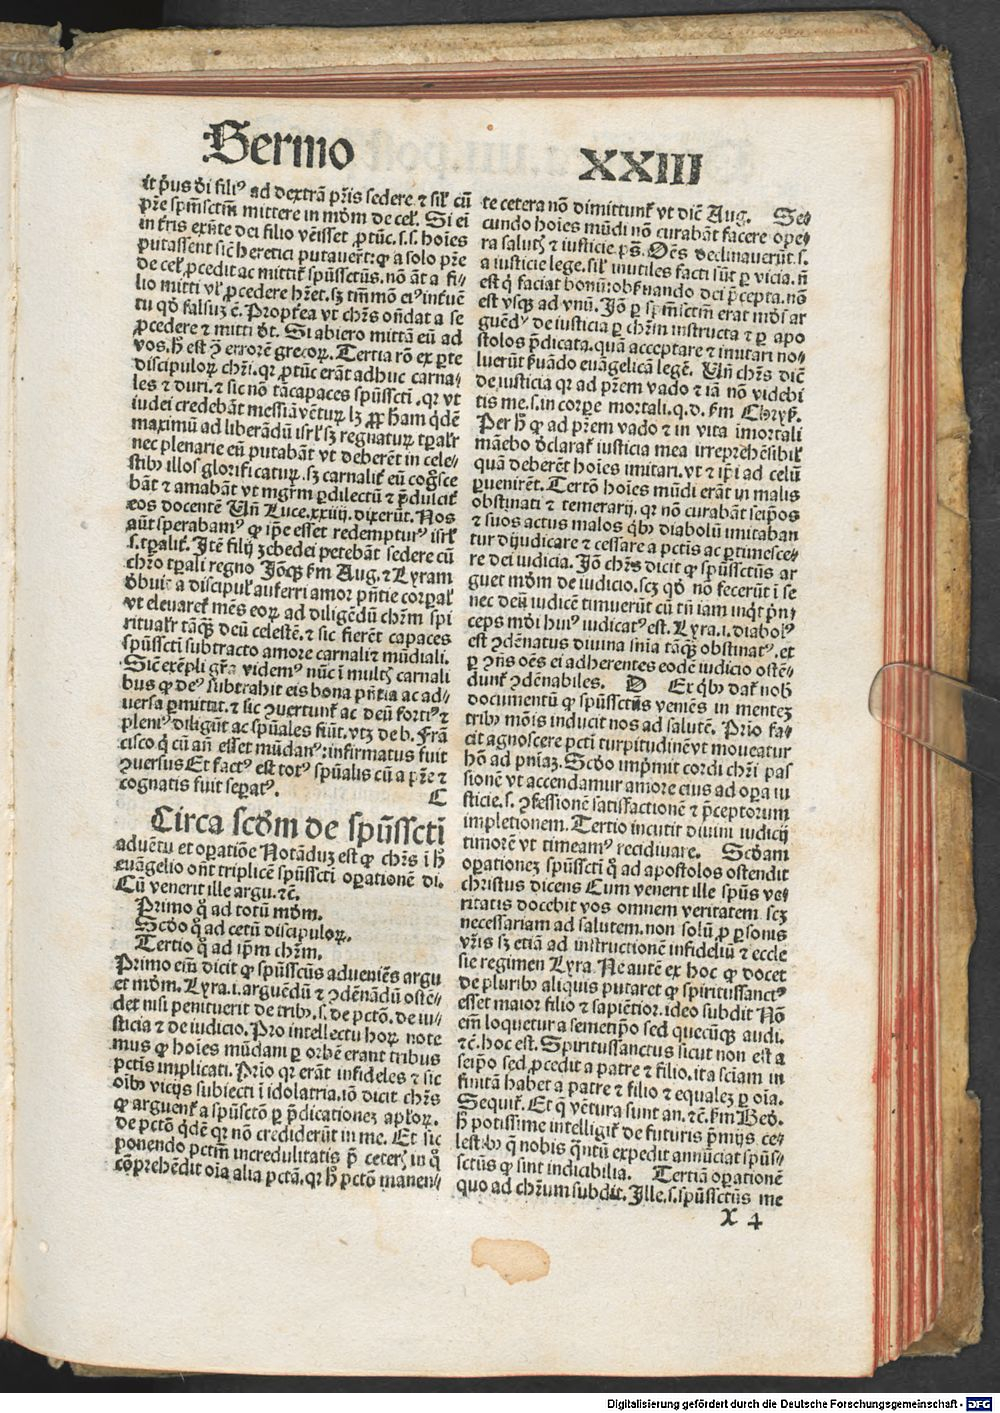 Sermo XXIII
it pͥus dͤi filiꝰ ad dextrã pr̃is sedere ⁊ sil’ cũ
pr̃e spm̃sctm̃ mittere in mũdm de cel’. Si ei͂
in tr̃is exñte dei filio vẽisset ꝓtũc .s.s. hoi͂es
putassent sic̃ heretici putauer̃t: ꝙ a solo pr̃e
de cel’ ꝓcedit ac mittit᷑ spũssctũs. nõ ãt a fi-
lio mitti vl’ ꝓcedere hr̃et. sꝫ tm̃mõ eiꝰ infuẽ
tu qd̓ falsuꝫ ẽ. Propt̃ea vt chr̃s oñdat a se
ꝓcedere ⁊ mitti dͥt. Si abiero mittã eũ ad
vos. h̓ est ꝯ errorẽ grecoꝝ. Tertia rõ ex ꝑte
discipuloꝝ chr̃i. qꝛ ꝓtũc erãt adhuc carna-
les ⁊ duri. ⁊ sic nõ tã capaces spũsscti. qꝛ vt
iudei credebãt messiã vẽtuꝝ lꝫ ꝓꝓ h̓am qd̃ẽ
maximũ ad liberãdũ isrl’ sꝫ regnatuꝝ tꝑal’r
nec plenarie eũ putabãt vt deberẽt in cele-
stibꝰ illos glorificatuꝝ. sꝫ carnalit᷑ eũ cog̃sce
bãt ⁊ amabãt vt mgr̃m ꝑdilectũ ⁊ p̃dulcit᷑
eos docentẽ Vñ Luce. xxiiij. dixerũt. Nos
aũt sperabamꝰ ꝙ ip̃e esset redempturꝰ isrl’
s. tꝑalit᷑. Itẽ filij zebedei petebãt sedere cũ
chr̃o tꝑali regno Jõqꝫ km Aug. ⁊ Lyram
dͤbuit a discipul’ auferri amor pñtie corꝑal’
vt eleuaret᷑ mẽs eoꝝ ad diligẽdũ chr̃m spi
ritual’r tãqꝫ deũ celestẽ. ⁊ sic fierẽt capaces
spũsscti subtracto amore carnali ⁊ mũdiali.
Sic̃ exẽpli gr̃a videmꝰ nũc i͂ mult̓ carnali
bus ꝙ deꝰ subtrahit eis bona pñtia ac ad-
uersa ꝑmittat. ⁊ sic ꝯuertunt᷑ ac deũ fortiꝰ ⁊
pleniꝰ diligũt ac spũales fiũt. vtꝫ de b. Frã
cisco q̃ cũ añ esset mũdanꝰ: infirmatus fuit
ꝯuersus Et factꝰ est totꝰ spũalis cũ a pr̃e ⁊
cognatis fuit seꝑatꝰ. C
Circa scd̓m de spũsscti
aduẽtu et oꝑatiõe Notãduꝫ est ꝙ chr̃s i͂ h̓
euãgelio oñt triplicẽ spũsscti oꝑationẽ di.
Cũ venerit ille argu. ⁊c̃.
Primo q̊ ad totũ mũdm.
Scd̓o q̊ ad cetũ discipuloꝝ.
Tertio q̊ ad ip̃m chr̃m.
Primo em̃ dicit ꝙ spũsscũs adueniẽs argu
et mũdm. Lyra. i. arguẽdũ ⁊ ꝯdẽnãdũ ostẽ-
det nisi penituerit de tribꝰ. s. de pctõ. de iu-
sticia ⁊ de iudicio. Pro intellectu hoꝝ note
mus ꝙ hoi͂es mũdani ꝑ orbẽ erant tribus
pctis implicati. Prio qꝛ erãt infideles ⁊ sic
oi͂bꝰ vicijs subiecti i͂ idolatria. iõ dicit chr̃s
ꝙ arguent᷑ a spũsctõ ꝑ p̃dicationeꝫ apl’oꝝ.
de pctõ qd̃ẽ qꝛ nõ crediderũt in me. Et sic
ponendo pctm̃ incredulitatis p̃ ceter̓ in q̊
cõprehẽdit oi͂a alia pctã. qꝛ h̓ pctõ manen-
te cetera nõ dimittunt᷑ vt dic̃ Aug. Se-
cundo hoi͂es mũdi nõ curabãt facere ope-
ra salut̓ ⁊ iusticie ps̃. Om̃es declinauerũt. s.
a iusticie lege. sil’ inutiles facti sũt ꝑ vicia. ñ
est q̃ faciat bonũ: obẽuando dei p̃cepta. nõ
est vsqꝫ ad vnũ. Jõ ꝑ spm̃sctm̃ erat mũdͥ ar
guẽdꝰ de iusticia ꝑ chr̃m instructa ⁊ ꝑ apo
stolos p̃dicata. quã acceptare ⁊ imitari no-
luerũt ẽuãdo euãgelicã legẽ. Vñ chr̃s dic̃
de iusticia qꝛ ad pr̃em vado ⁊ iã nõ videbi
tis me. s. in corꝑe mortali. q. d. km Chrys̃.
Per h̓ ꝙ ad pr̃em vado ⁊ in vita imortali
mãebo dͤclarat᷑ iusticia mea irreprehẽsibil’
quã deberẽt hoi͂es imitari. vt ⁊ ip̃i ad celũ
ꝑuenirẽt. Tertõ hoi͂es mũdi erãt in malis
obstinati ⁊ temerarij. qꝛ nõ curabãt seip̃os
⁊ suos actus malos q̃bꝰ diabolũ imitaban
tur dijudicare ⁊ cessare a pctis ac ꝑtimesce-
re dei iudicia. Jõ chr̃s dicit ꝙ spũssctũs ar
guet mũdm de iudicio. scꝫ qd̓ nõ fecerũt i͂ se
nec deũ iudicẽ timuerũt cũ tñ iam inq̃t pͥn-
ceps mũdi huiꝰ iudicatꝰ est. Lyra. i. diabolꝰ
est ꝯdẽnatus diuina sñia tãqꝫ obstinatꝰ. et
ꝑ ꝯñs oẽs ei adherentes eodẽ iudicio ostẽ-
dunt᷑ ꝯdẽnabiles. D Ex q̃bꝰ dat᷑ nob̓
documentũ ꝙ spũssctũs veniẽs in menteꝫ
tribꝰ mõis inducit nos ad salutẽ. Prio fa-
cit agnoscere pcti turpitudinẽ vt moueatur
hõ ad pñiaꝫ. Scd̓o imp̃mit cordi chr̃i pas
sionẽ vt accendamur amore eius ad oꝑa iu
sticie. s. ꝯfessionẽ satisfactionẽ ⁊ p̃ceptorum
impletionem. Tertio incutit diuini iudicij
timorẽ vt timeamꝰ recidiuare. Scd̓am
oꝑationeꝫ spũsscti q̊ ad apostolos ostendit
christus dicens Cum venerit ille spũs ve-
ritatis docebit vos omnem veritatem scꝫ
necessariam ad salutem. non solũ ꝓ ꝑsonis
vr̃is sꝫ etiã ad instructionẽ infideliũ ⁊ eccle
sie regimen Lyra Ne autẽ ex hoc ꝙ docet
de pluribꝰ aliquis putaret ꝙ spiritussanctꝰ
esset maior filio ⁊ sapiẽtior. ideo subdit Nõ
em̃ loquetur a semetip̃o sed quecũqꝫ audi.
⁊c̃. hoc est. Spiritussanctus sicut non est a
seip̃o sed ꝓcedit a patre ⁊ filio. ita sciam in
finitã habet a patre ⁊ filio ⁊ equaleꝫ ꝑ oi͂a.
Sequit᷑. Et q̃ vẽtura sunt an. ⁊c̃. km Bed̓.
h̓ potissime intelligit᷑ de futuris p̃mijs ce-
lestibꝰ q̃ nobis q̃ntũ expedit annũciat spũs-
sctũs ꝙ sint indicibilia. Tertiã oꝑationẽ
quo ad chr̃um subdit. Ille. s. spũssctũs me
X 4
Digitalisierung gefördert durch die Deutsche Forschungsgemeinschaft - DFG